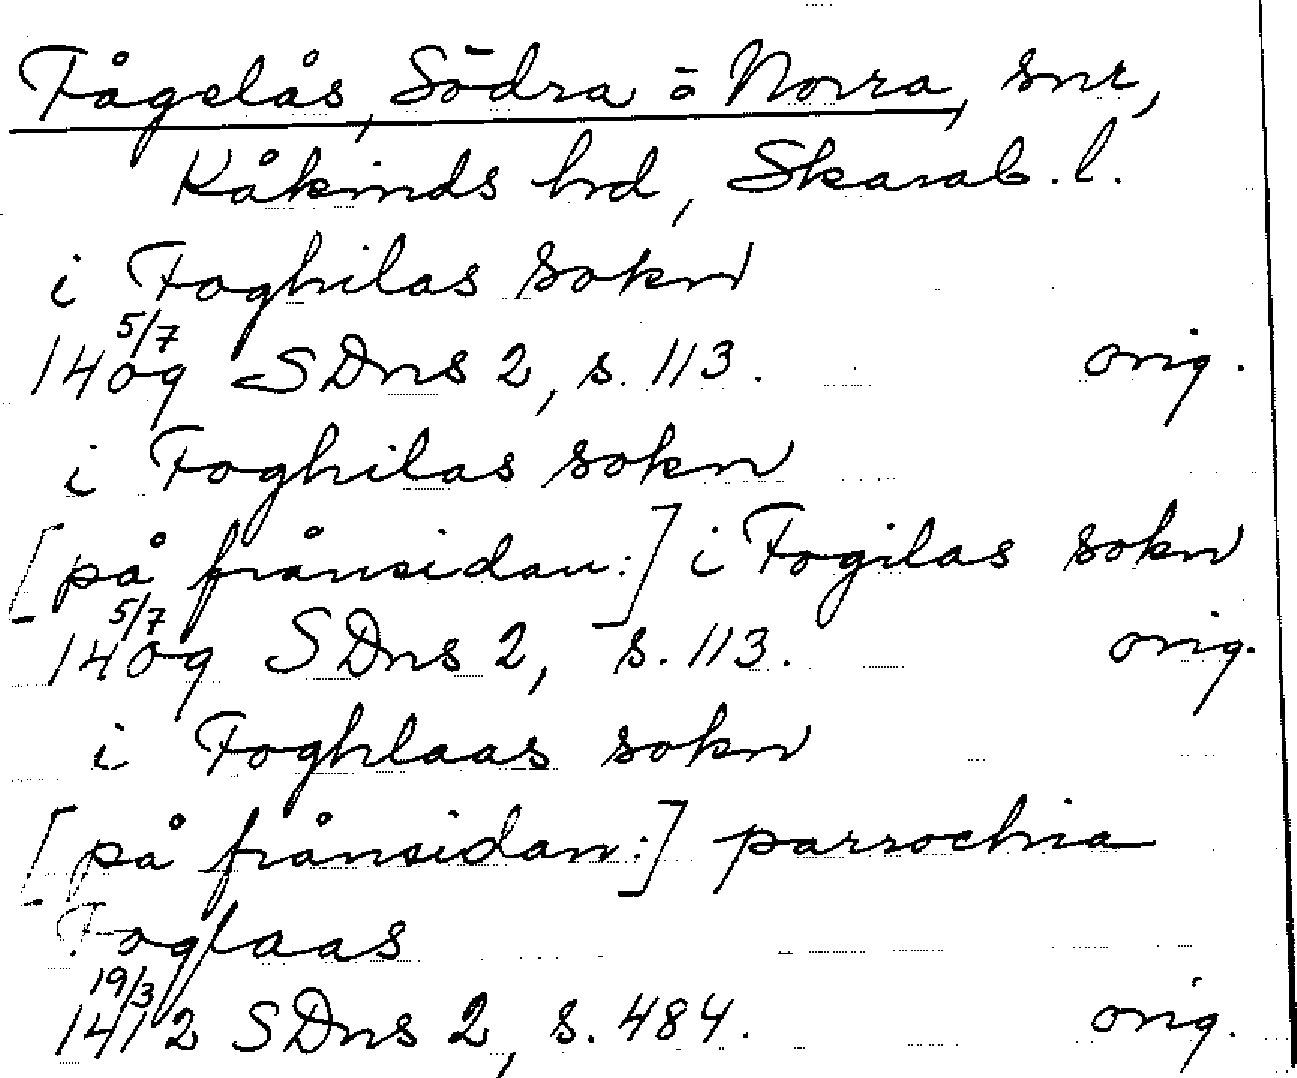 Fågelås, Södra o Norra, snr,
Kåkinds hrd, Skarab. l.
i Foghilas sokn
5/7
1409 SDns 2, s. 113. orig.
i Foghilas sokn
[på frånsidan:] i Fogilas sokn
5/7
1409 SDns 2, s. 113. orig.
i Foghlaas sokn
[på frånsidan:] parrochia
Foglaas
19/3
1412 SDns 2, s. 484. orig.